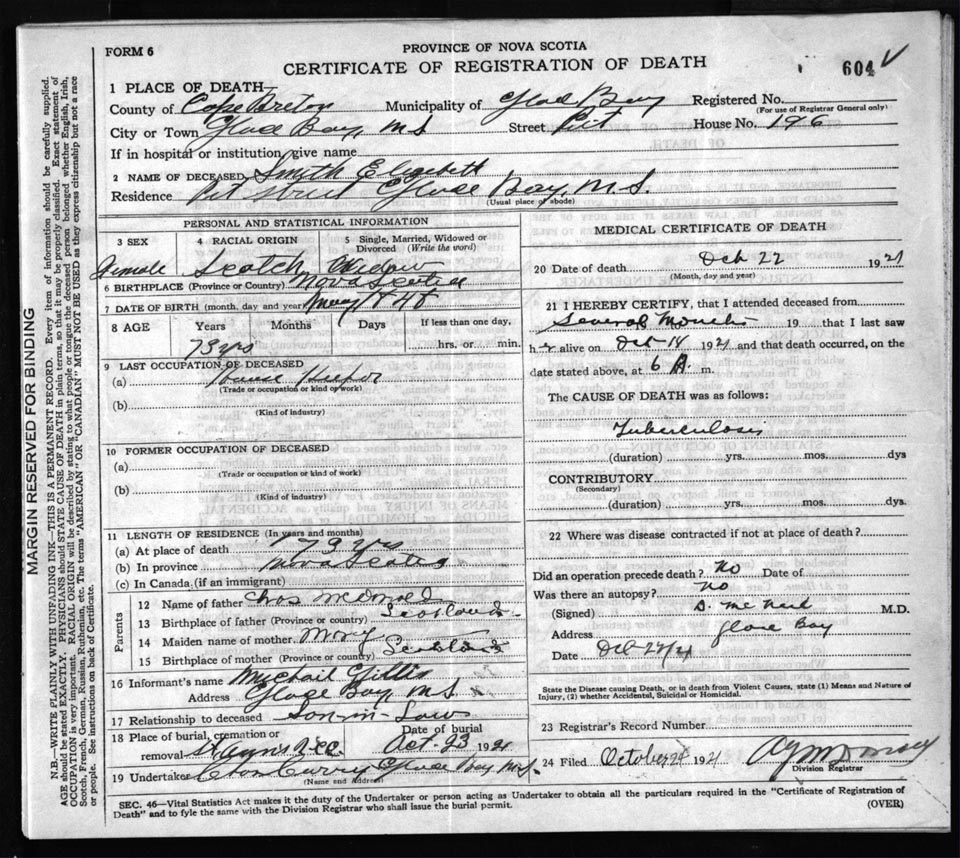 FORM 6
PROVINCE OF NOVA SCOTIA
CERTIFICATE OF REGISTRATION OF DEATH
604
1 PLACE OF DEATH
County of Cape Breton Municipality of Glace Bay Registered No.
(For use of Registrar General only)
City or Town Glace Bay, N S Street Pitt House No. 196
If in hospital or institution, give name
2 NAME OF DECEASED Smith Elizabeth
Residence Pit Street Glace Bay, N.S.
(Usual place of abode)
PERSONAL AND STATISTICAL INFORMATION
3 SEX 4 RACIAL ORIGIN 5 Single, Married, Widowed or Divorced (Write the word)
Female Scotch Widow
6 BIRTHPLACE (Province or Country) Nova Scotia
7 DATE OF BIRTH (month, day and year) May 1848
8 AGE Years Months Days If less than one day,
73 yrs hrs. or min.
9 LAST OCCUPATION OF DECEASED
(a) House Keeper
(Trade or occupation or kind of work)
(b)
(Kind of industry)
10 FORMER OCCUPATION OF DECEASED
(a)
(Trade or occupation or kind of work)
(b)
(Kind of industry)
11 LENGTH OF RESIDENCE (In years and months)
(a) At place of death 73 yrs
(b) In province Nova Scotia
(c) In Canada (if an immigrant)
Parents
12 Name of father Chas
13 Birthplace of father (Province or country) Scotland
14 Maiden name of mother Mary
15 Birthplace of mother (Province or country) Scotland
16 Informant's name Michail Gillis
Address Glace Bay N S
17 Relationship to deceased Son-in-Law
18 Place of burial, cremation or removal Date of burial
St Anns Oct. 23 1921
19 Undertaker Curry Glace Bay N.S.
(Name and Address)
MEDICAL CERTIFICATE OF DEATH
20 Date of death Oct 22 1921
(Month, day and year)
21 I HEREBY CERTIFY, that I attended deceased from
Several Months 19 that I last saw
her alive on Oct-18 1921 and that death occurred, on the
date stated above, at 6 A. m.
The CAUSE OF DEATH was as follows:
Tuberculosis
(duration) yrs. mos. dys
CONTRIBUTORY
(Secondary)
(duration) yrs. mos. dys.
22 Where was disease contracted if not at place of death?
Did an operation precede death? No Date of
Was there an autopsy? No
(Signed) M.D.
Address Glace Bay
Date Oct 22/21
State the Disease causing Death, or in death from Violent Causes, state (1) Means and Nature of
Injury, (2) whether Accidental, Suicidal or Homicidal.
23 Registrar's Record Number
24 Filed October 1921
Division Registrar
SEC. 46—Vital Statistics Act makes it the duty of the Undertaker or person acting as Undertaker to obtain all the particulars required in the "Certificate of Registration of
Death" and to fyle the same with the Division Registrar who shall issue the burial permit. (OVER)
MARGIN RESERVED FOR BINDING
N.B.—WRITE PLAINLY WITH UNFADING INK—THIS IS A PERMANENT RECORD. Every item of information should be carefully supplied.
AGE should be stated EXACTLY. PHYSICIANS should STATE CAUSE OF DEATH in plain terms, so that it may be properly classified. Exact statement of
OCCUPATION is very important. RACIAL ORIGIN will be described by stating to what people or tongue the deceased person belonged whether English, Irish,
Scotch, French, German, Russian, Ruthenian, etc. The terms "AMERICAN" OR "CANADIAN" MUST NOT BE USED as they express citizenship but not a race
or people. See instructions on back of Certificate.